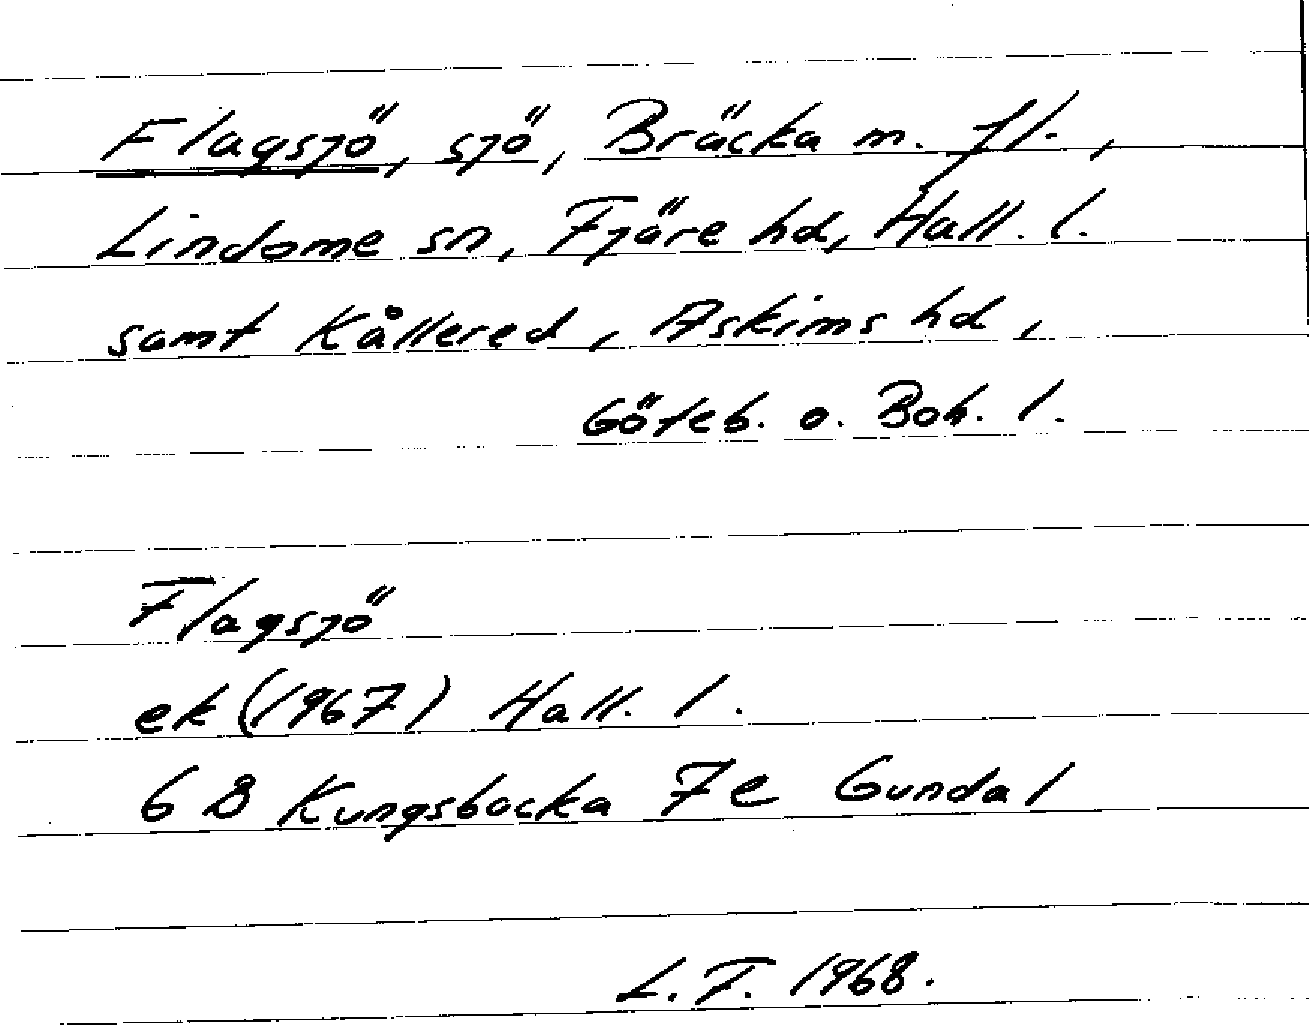 Flagsjö, sjö, Bräcka m. fl.,
Lindome sn, Fjäre hd, Hall. l.
samt Kållered, Askims hd,
Göteb. o. Boh. l.
Flagsjö
ek (1967) Hall. l.
6 B Kungsbacka 7e Gundal
L.F. 1968.